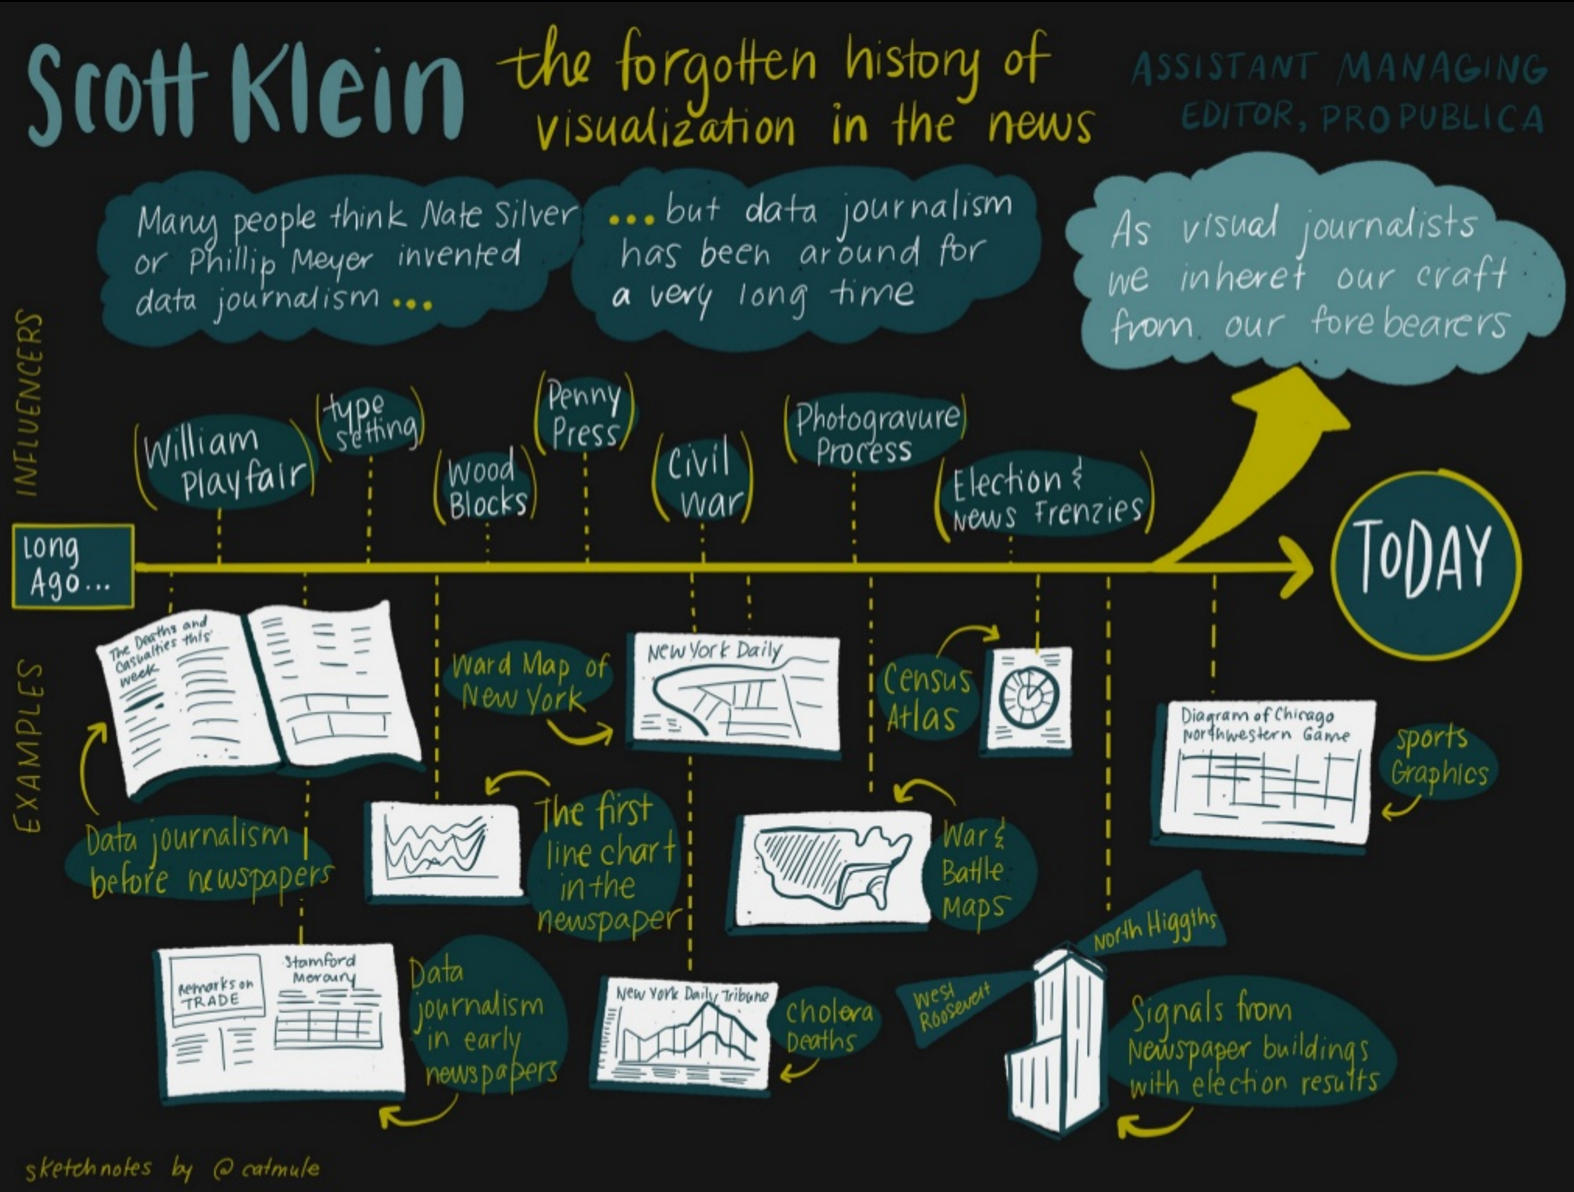 Scott Klein
the forgotten history of
visualization in the news
ASSISTANT MANAGING
EDITOR, PROPUBLICA
Many people think Nate Silver
or Phillip Meyer invented
data journalism ...
... but data journalism
has been around for
a very long time
As visual journalists
we inheret our craft
from our forebearers
INFLUENCERS
William
Playfair
type
setting
Wood
Blocks
Penny
Press
Civil
War
Photogravure
Process
Election &
News Frenzies
Long
Ago...
TODAY
EXAMPLES
The Deaths and
Casualties this
week
Data journalism
before newspapers
Ward Map of
New York
New York Daily
Census
Atlas
Diagram of Chicago
Northwestern Game
Sports
Graphics
The first
line chart
in the
newspaper
War &
Battle
Maps
Remarks on
TRADE
Stamford
Mercury
Data
journalism
in early
newspapers
New York Daily Tribune
Cholera
Deaths
West
Roosevelt
North Higgins
Signals from
Newspaper buildings
with election results
sketchnotes by @catmule